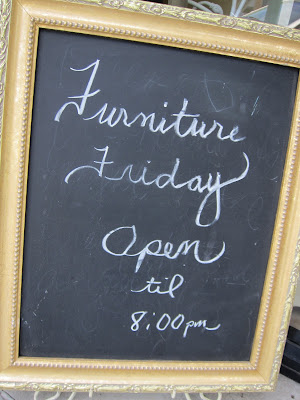 Furniture
Friday
Open
til
8:00pm